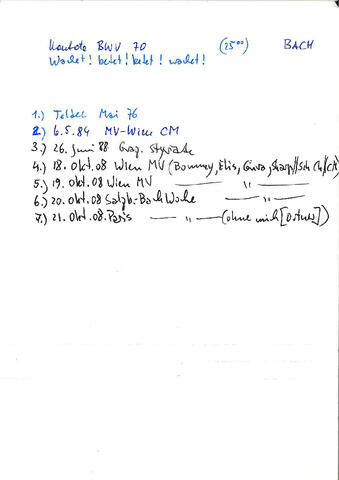 Kantate BWV 70 (25⁰⁰) BACH
Wachet! betet! betet! wachet!
1.) Teldec Mai 76
2.) 6.5.84 MV-Wien CM
3.) 26. Juni 88 Graz Styriarte
4.) 18. Okt. 08 Wien MV (Bonney, Elis, Güra, //Sch Ch//CM)
5.) 19. Okt. 08 Wien MV —— " ——
6.) 20. Okt. 08 Salzb.-BachWoche —— " ——
7.) 21. Okt. 08. Paris —— " —— (ohne mich [])